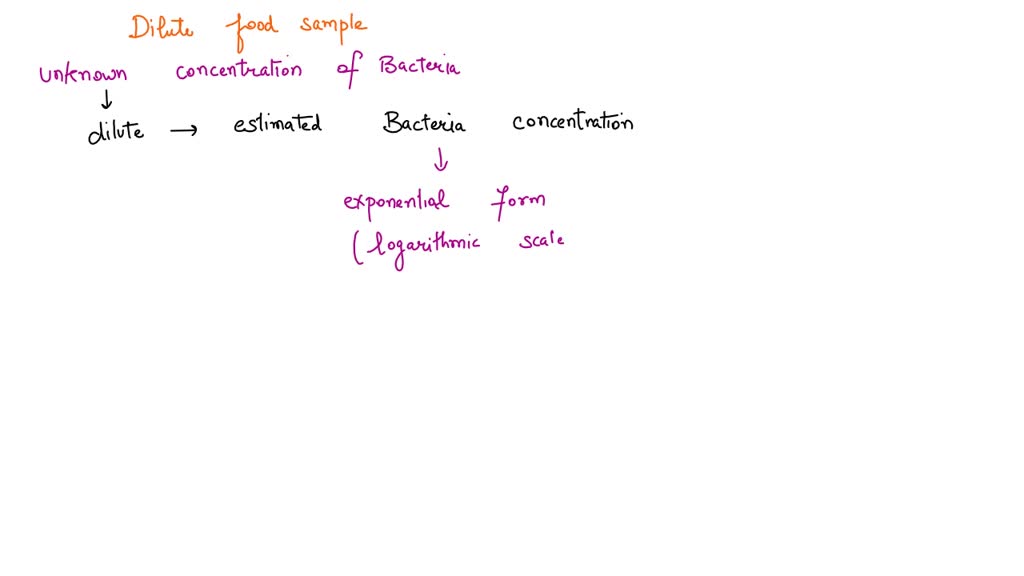 Dilute food sample
unknown concentration of Bacteria
↓
dilute → estimated Bacteria concentration
↓
exponential form
(logarithmic scale